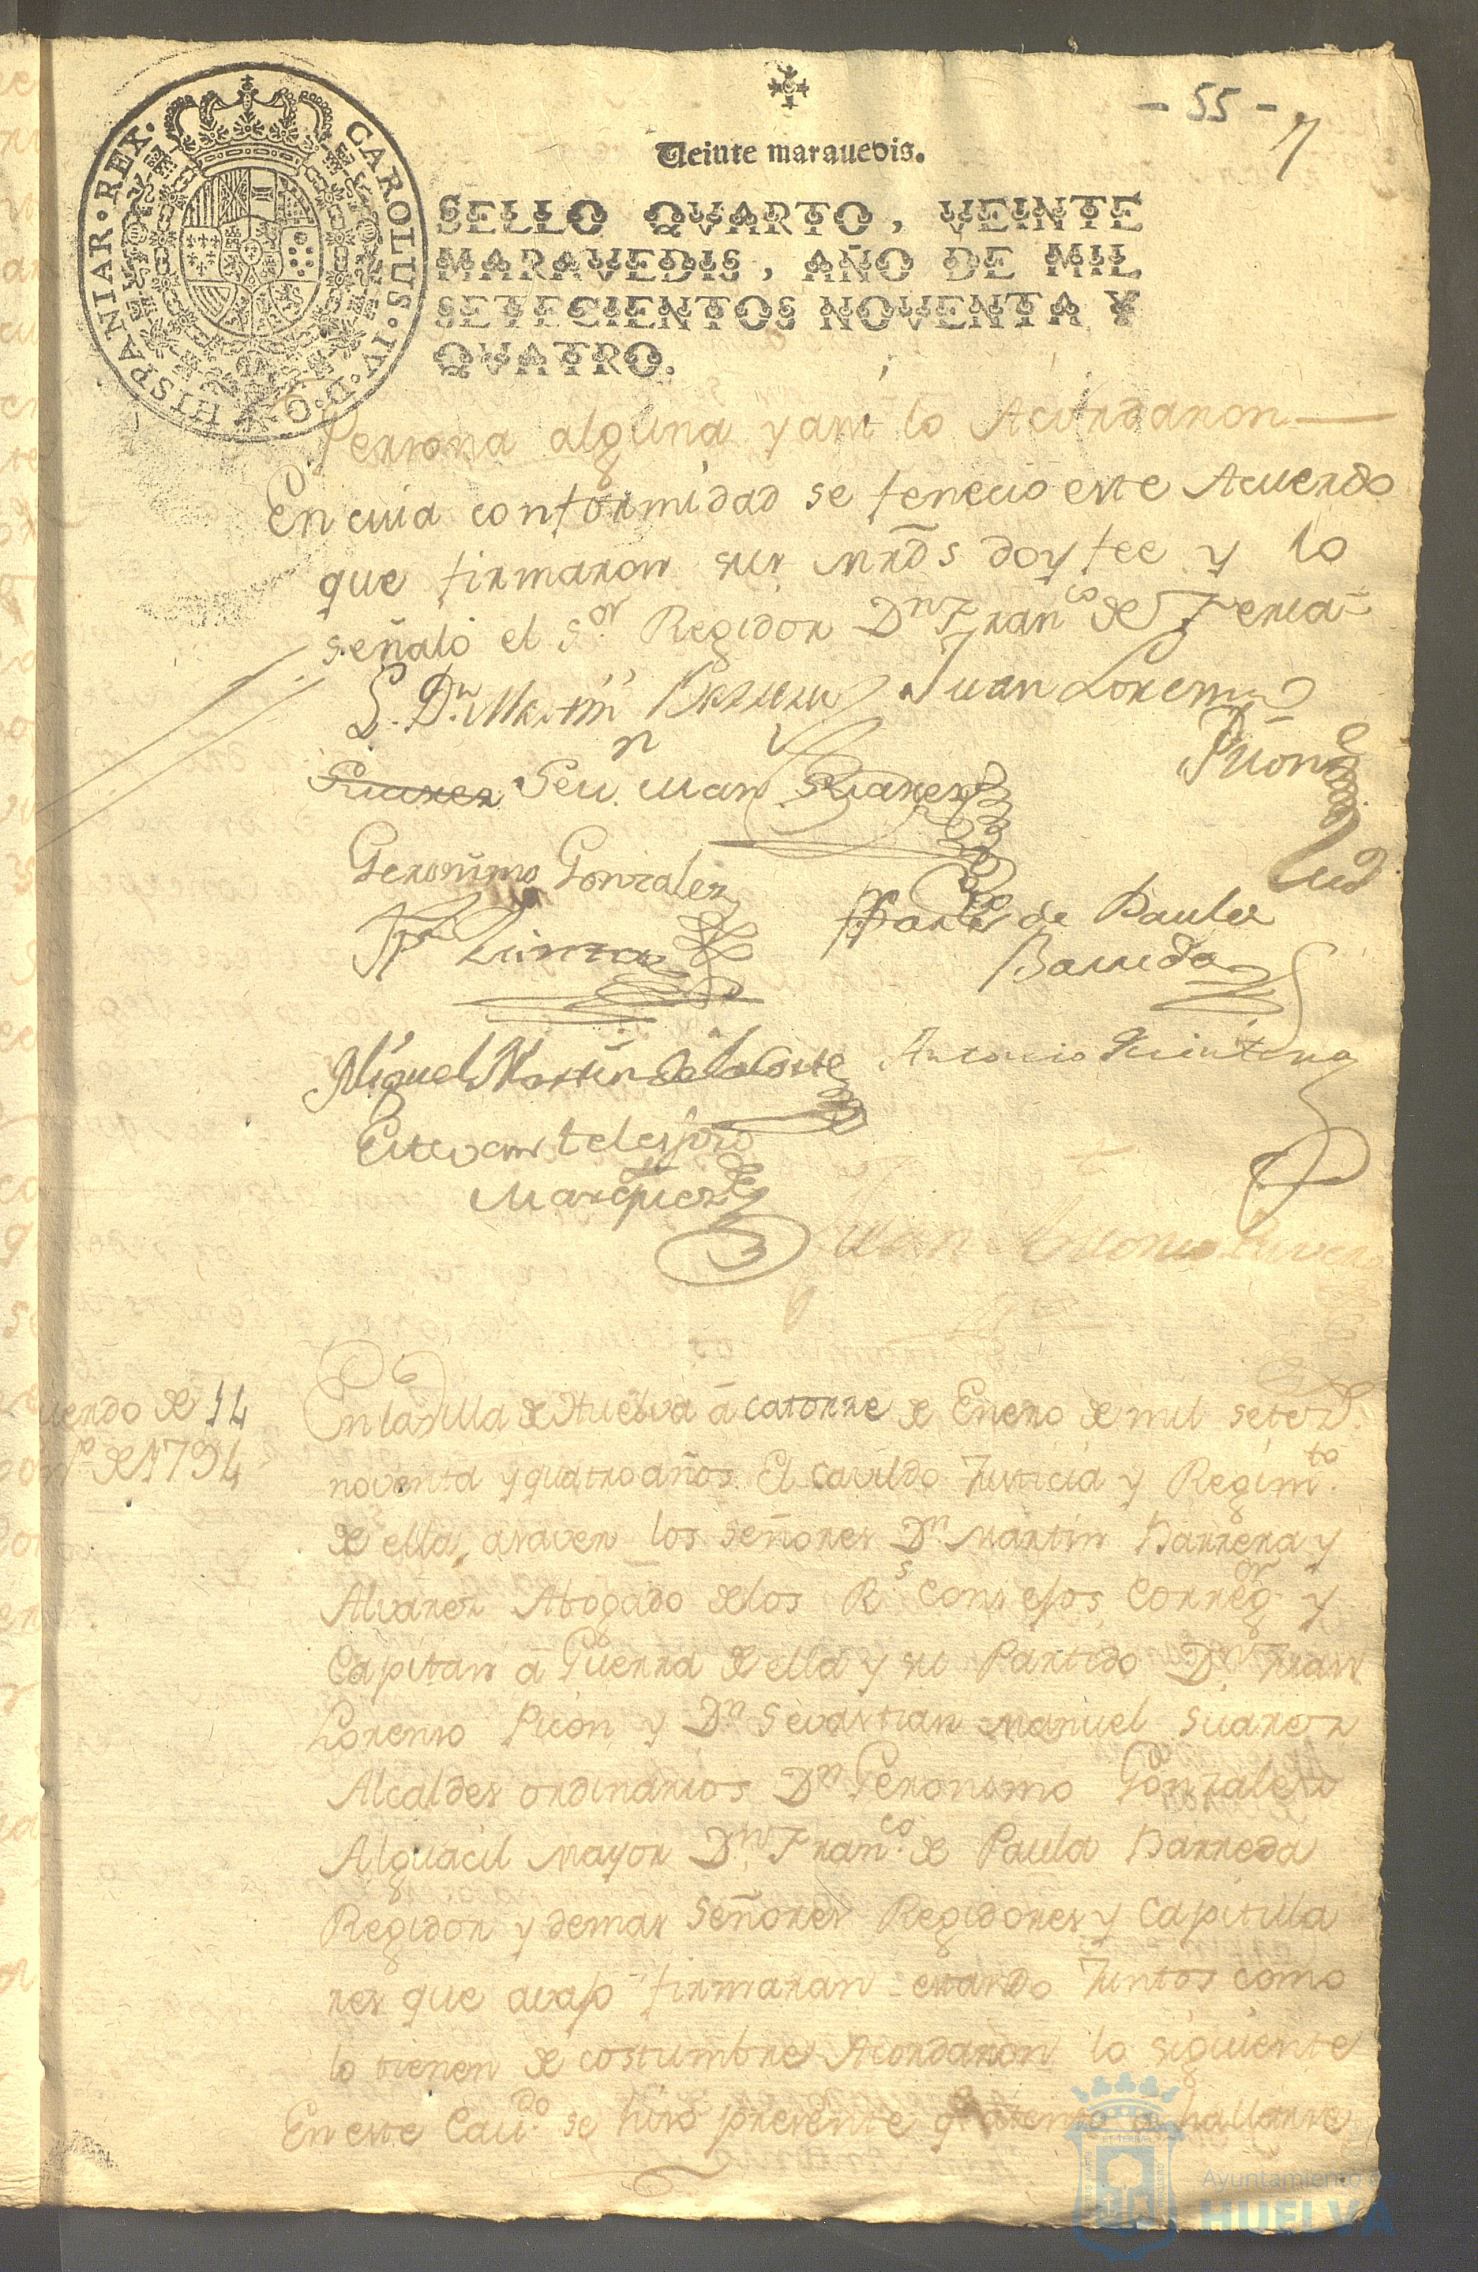 - 55 -
Veinte marauedis.
CAROLUS·IV·D·G·HISPANIAR·REX·
SELLO QVARTO, VEINTE
MARAVEDIS, AÑO DE MIL
SETECIENTOS NOVENTA Y
QVATRO.
Persona alguna y asi lo Acordaron
En cuia conformidad se fenecio este Acuerdo
que firmaron sus mrds doy fee y lo
señaló el Sor. Regidor Dn Franco de
L. Dn. Martin Barrera Juan Lorenso
Picon
Suarez Sevn. Man Suarez
Geronimo Gonzalez
de Paula
Barreda
Miguel Martin de la Corte Antonio Quintero
Estevan telesforo
Marquez
Juan Antonio Rivera
uerdo de 14
de 1794
En la Villa de Huelva á catorze de Enero de mil setezs.
noventa y quatro años. El Cavildo Justicia y Regimto.
de ella, asaver los señores Dn. Martin Barrera y
Alvarez Abogado delos Rs. Consejos, Corregor. y
Capitan á Guerra de ella y su Partido Dn. Juan
Lorenso Picon, y Dn Sevastian Manuel Suarez
Alcaldes ordinarios Dn Geronimo Gonzalez
Alguacil mayor Dn. Franco. de Paula Barreda
Regidor y demas señores Regidores y Capitula
res que avajo firmaran estando Juntos como
lo tienen de costumbre Acordaron lo siguiente
En este Cavdo. se hizo presente hallarse
Ayuntamiento de
HUELVA